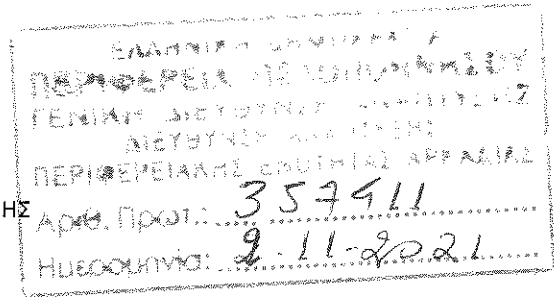 ΕΛΛΗΝΙΚΗ ΔΗΜΟΚΡΑΤΙΑ
ΠΕΡΙΦΕΡΕΙΑ ΠΕΛΟΠΟΝΝΗΣΟΥ
ΓΕΝΙΚΗ ΔΙΕΥΘΥΝΣΗ ΑΝΑΠΤΥΞΗΣ
ΔΙΕΥΘΥΝΣΗ ΑΝΑΠΤΥΞΗΣ
ΠΕΡΙΦΕΡΕΙΑΚΗΣ ΕΝΟΤΗΤΑΣ ΑΡΚΑΔΙΑΣ
ΗΣ
Αριθ. Πρωτ.: 357411
Ημερομηνία: 2-11-2021